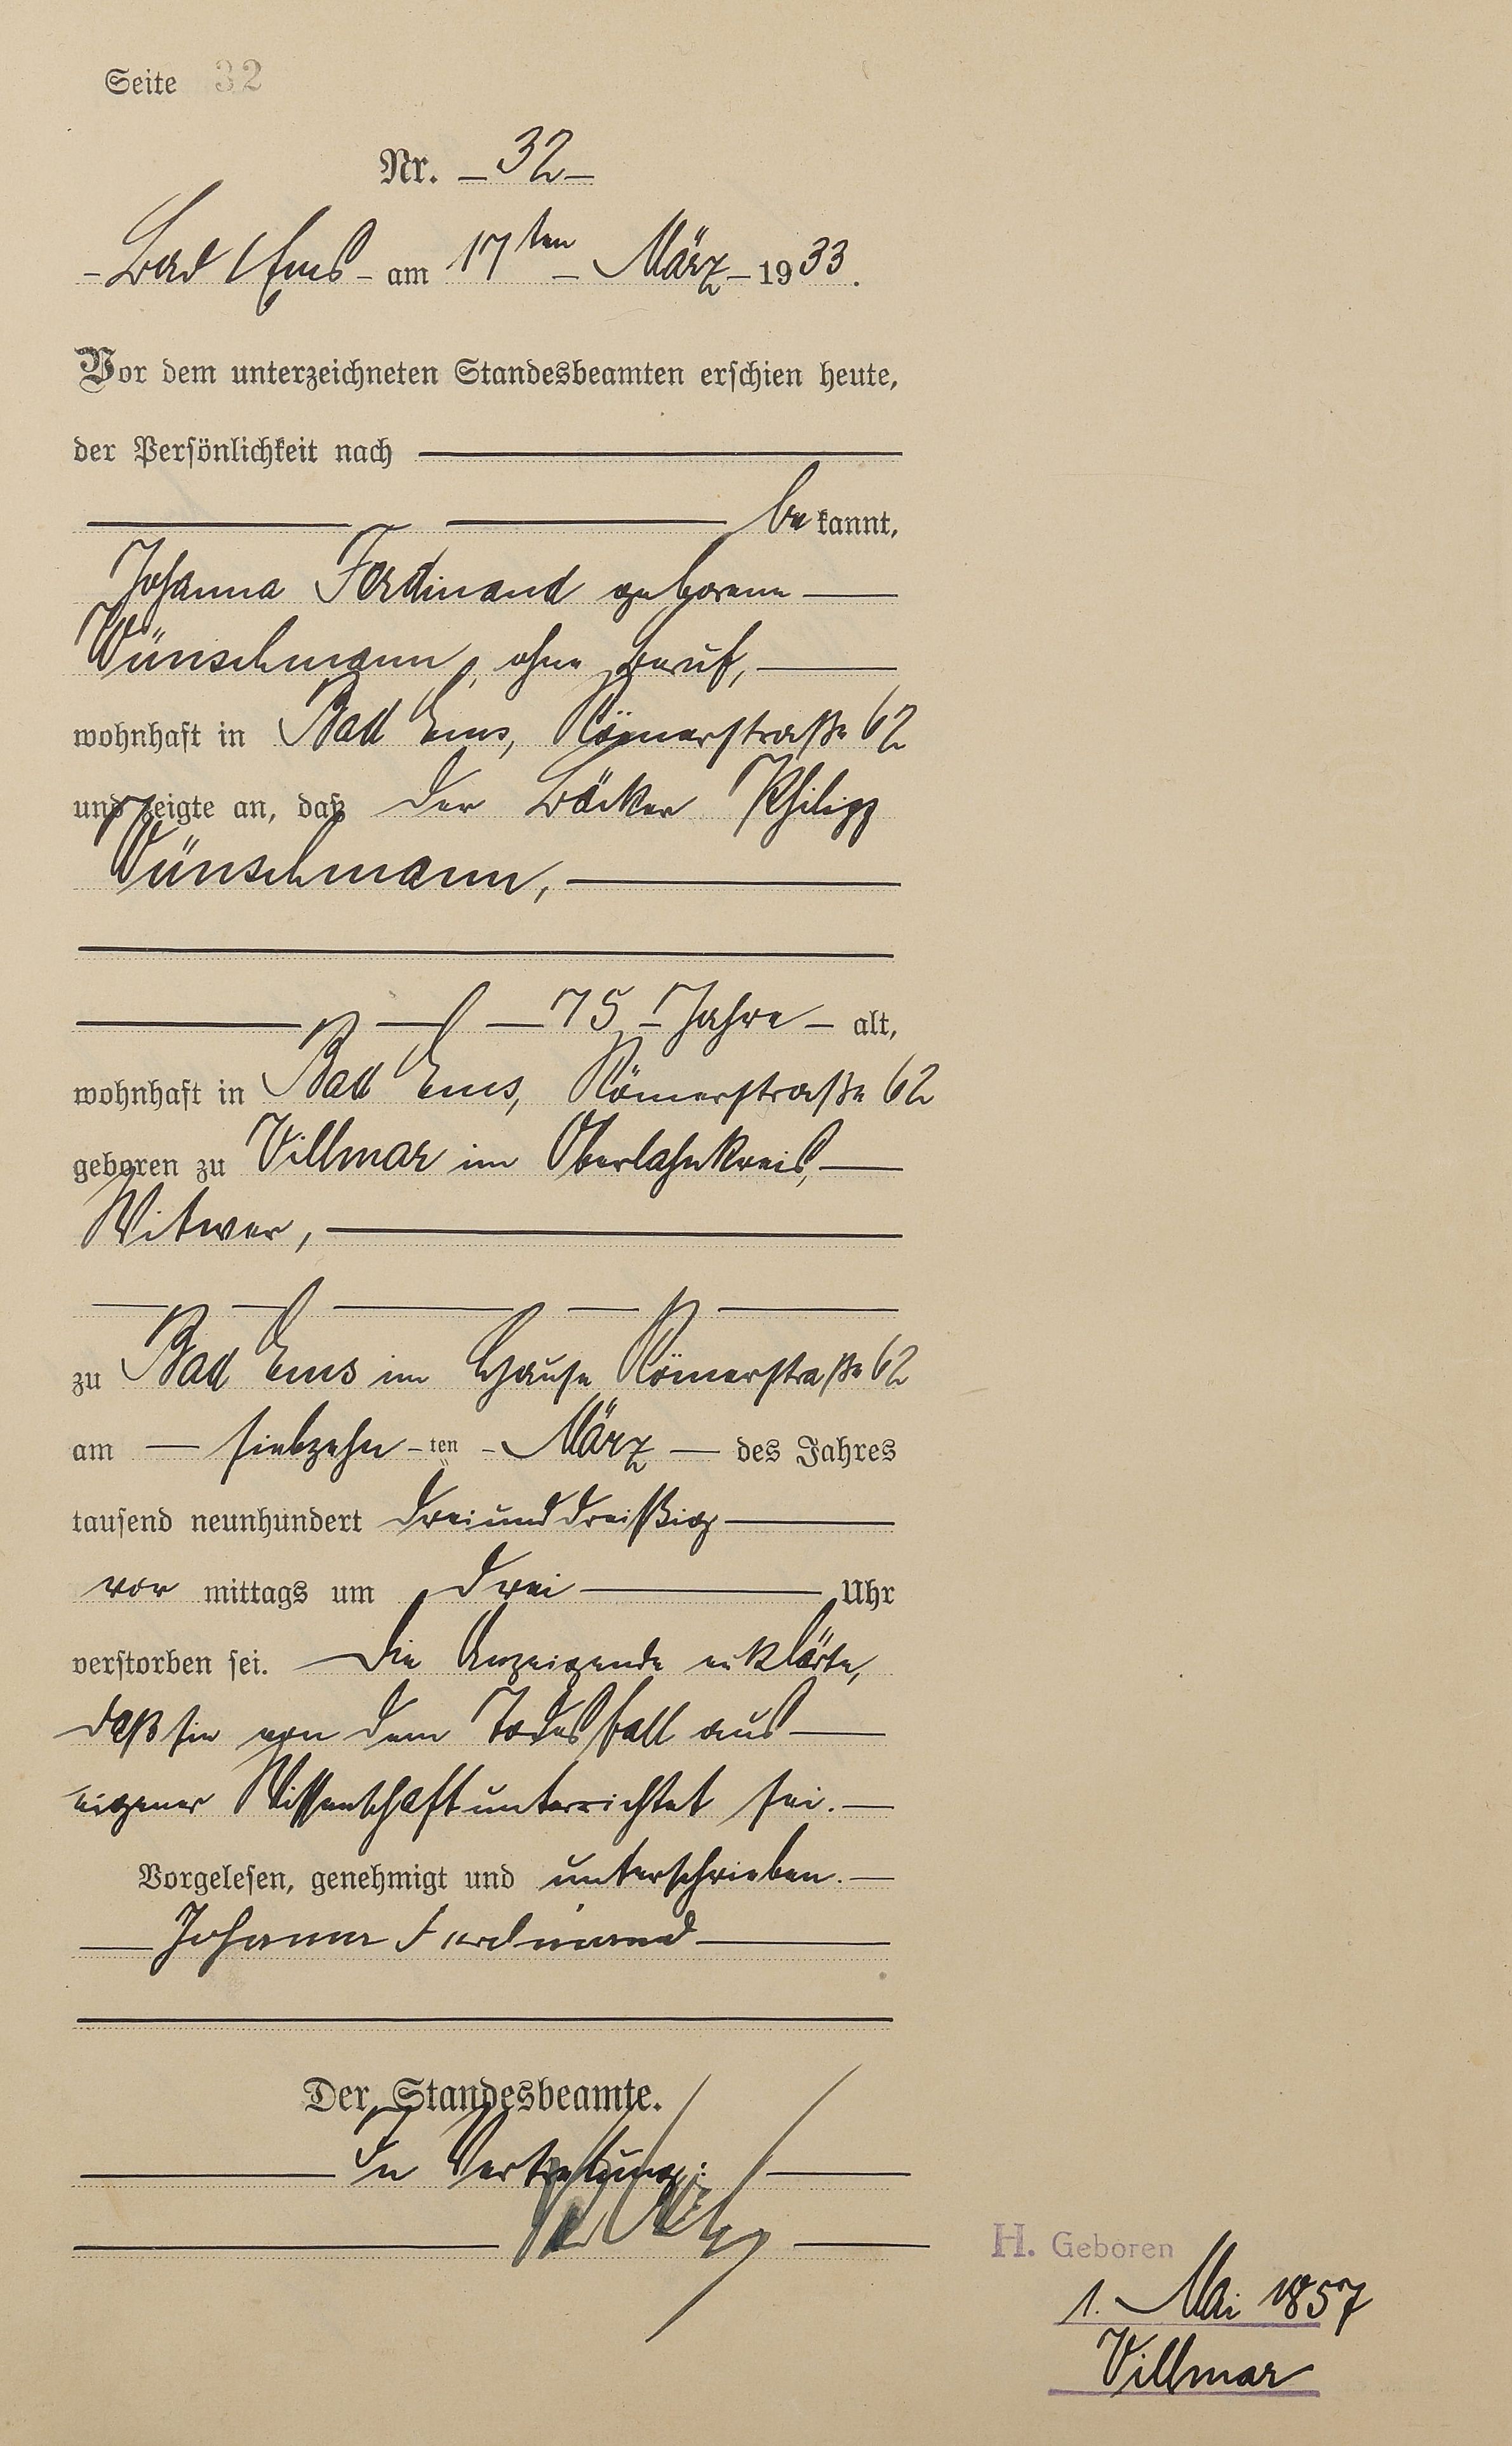 Seite 32
Nr. – 32 –
– Bad Ems – am 17ten – März – 1933.
Vor dem unterzeichneten Standesbeamten erschien heute,
der Persönlichkeit nach
bekannt,
Johanna Ferdinand geborene
Wünschmann, ohne Beruf,
wohnhaft in Bad Ems, Römerstraße 62
und zeigte an, daß der Bäcker Philipp
Wünschmann,
75 – Jahre – alt,
wohnhaft in Bad Ems, Römerstraße 62
geboren zu Villmar im Oberlahnkreis,
Witwer,
zu Bad Ems im Hause Römerstraße 62
am – siebzehn – ten – März – des Jahres
tausend neunhundert dreiunddreißig
vor mittags um drei Uhr
verstorben sei. Die Anzeigende erklärte,
daß sie von dem Todesfall aus
eigener Wissenschaft unterrichtet sei.
Vorgelesen, genehmigt und unterschrieben.
Johanna Ferdinand
Der Standesbeamte.
In Vertretung:
H. Geboren
1. Mai 1857
Villmar